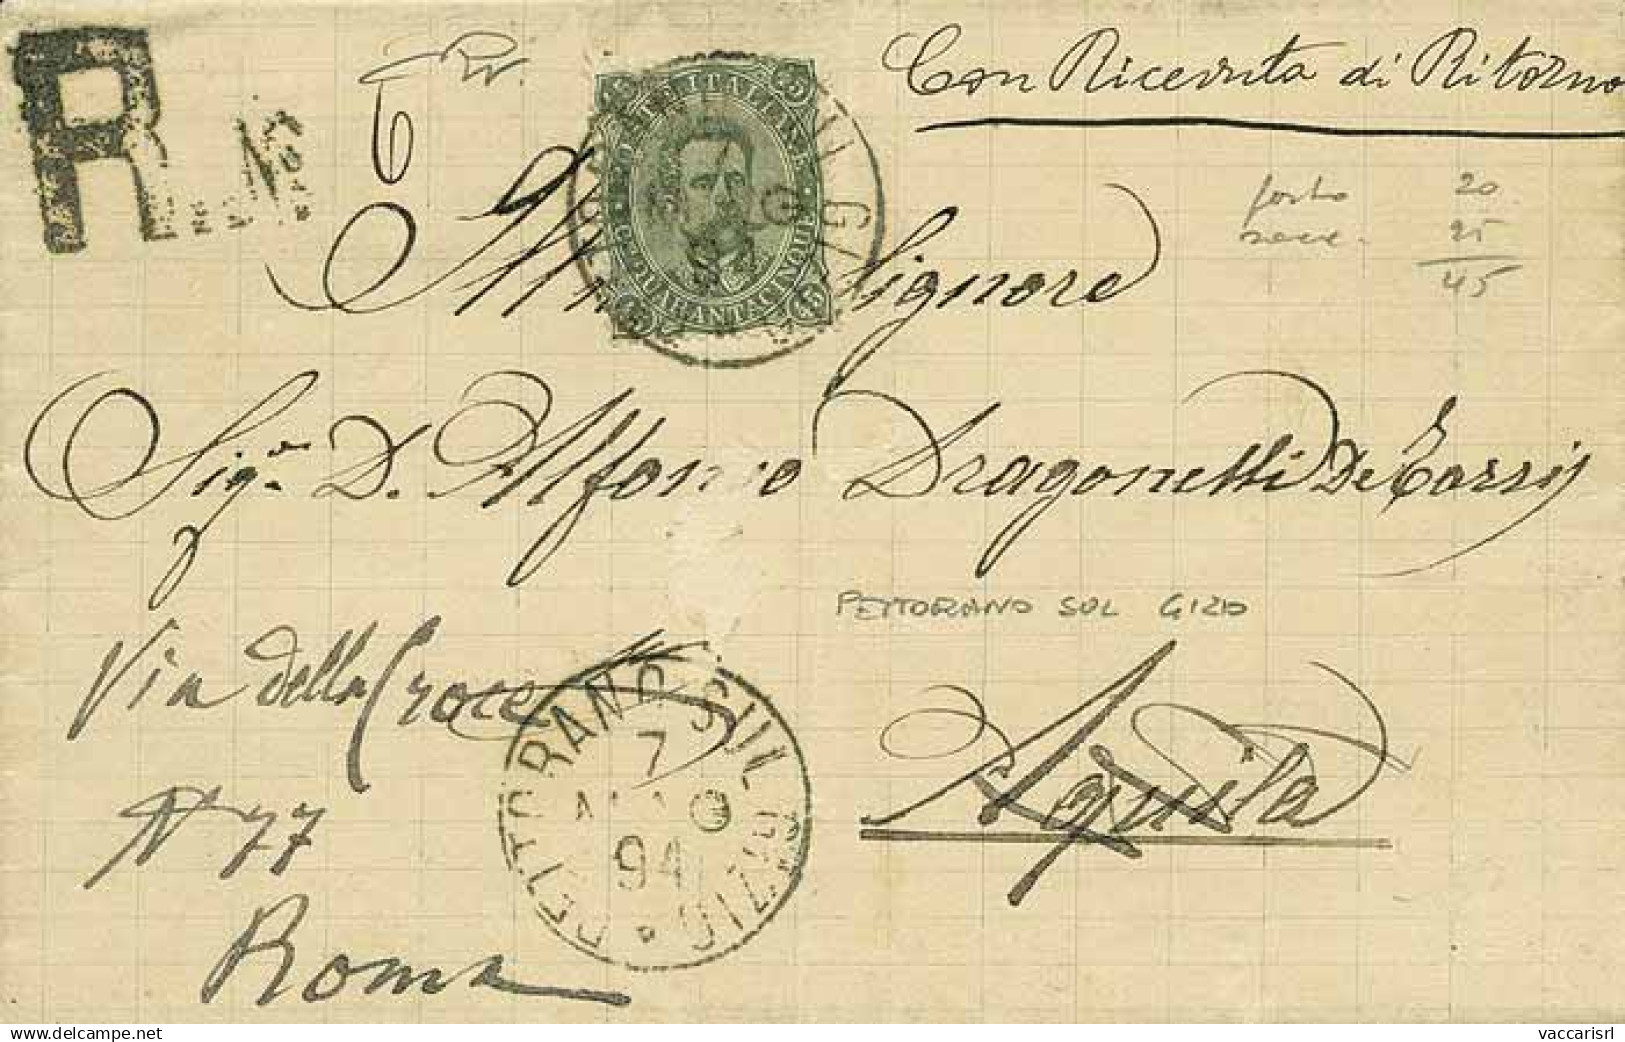 R.N.
6
Rr.
Con Ricevuta di Ritorno
POSTE ITALIANE
QUARANTACINQUE
45
porto 20
racc. 25
45
Signore
Sig.r D. Alfonso Dragonetti De Torris
PETTORANO SUL GIZIO
Via della Croce
PETTORANO SUL GIZIO
7
94
Aquila
N 77
Roma
www.delcampe.net
vaccarisrl